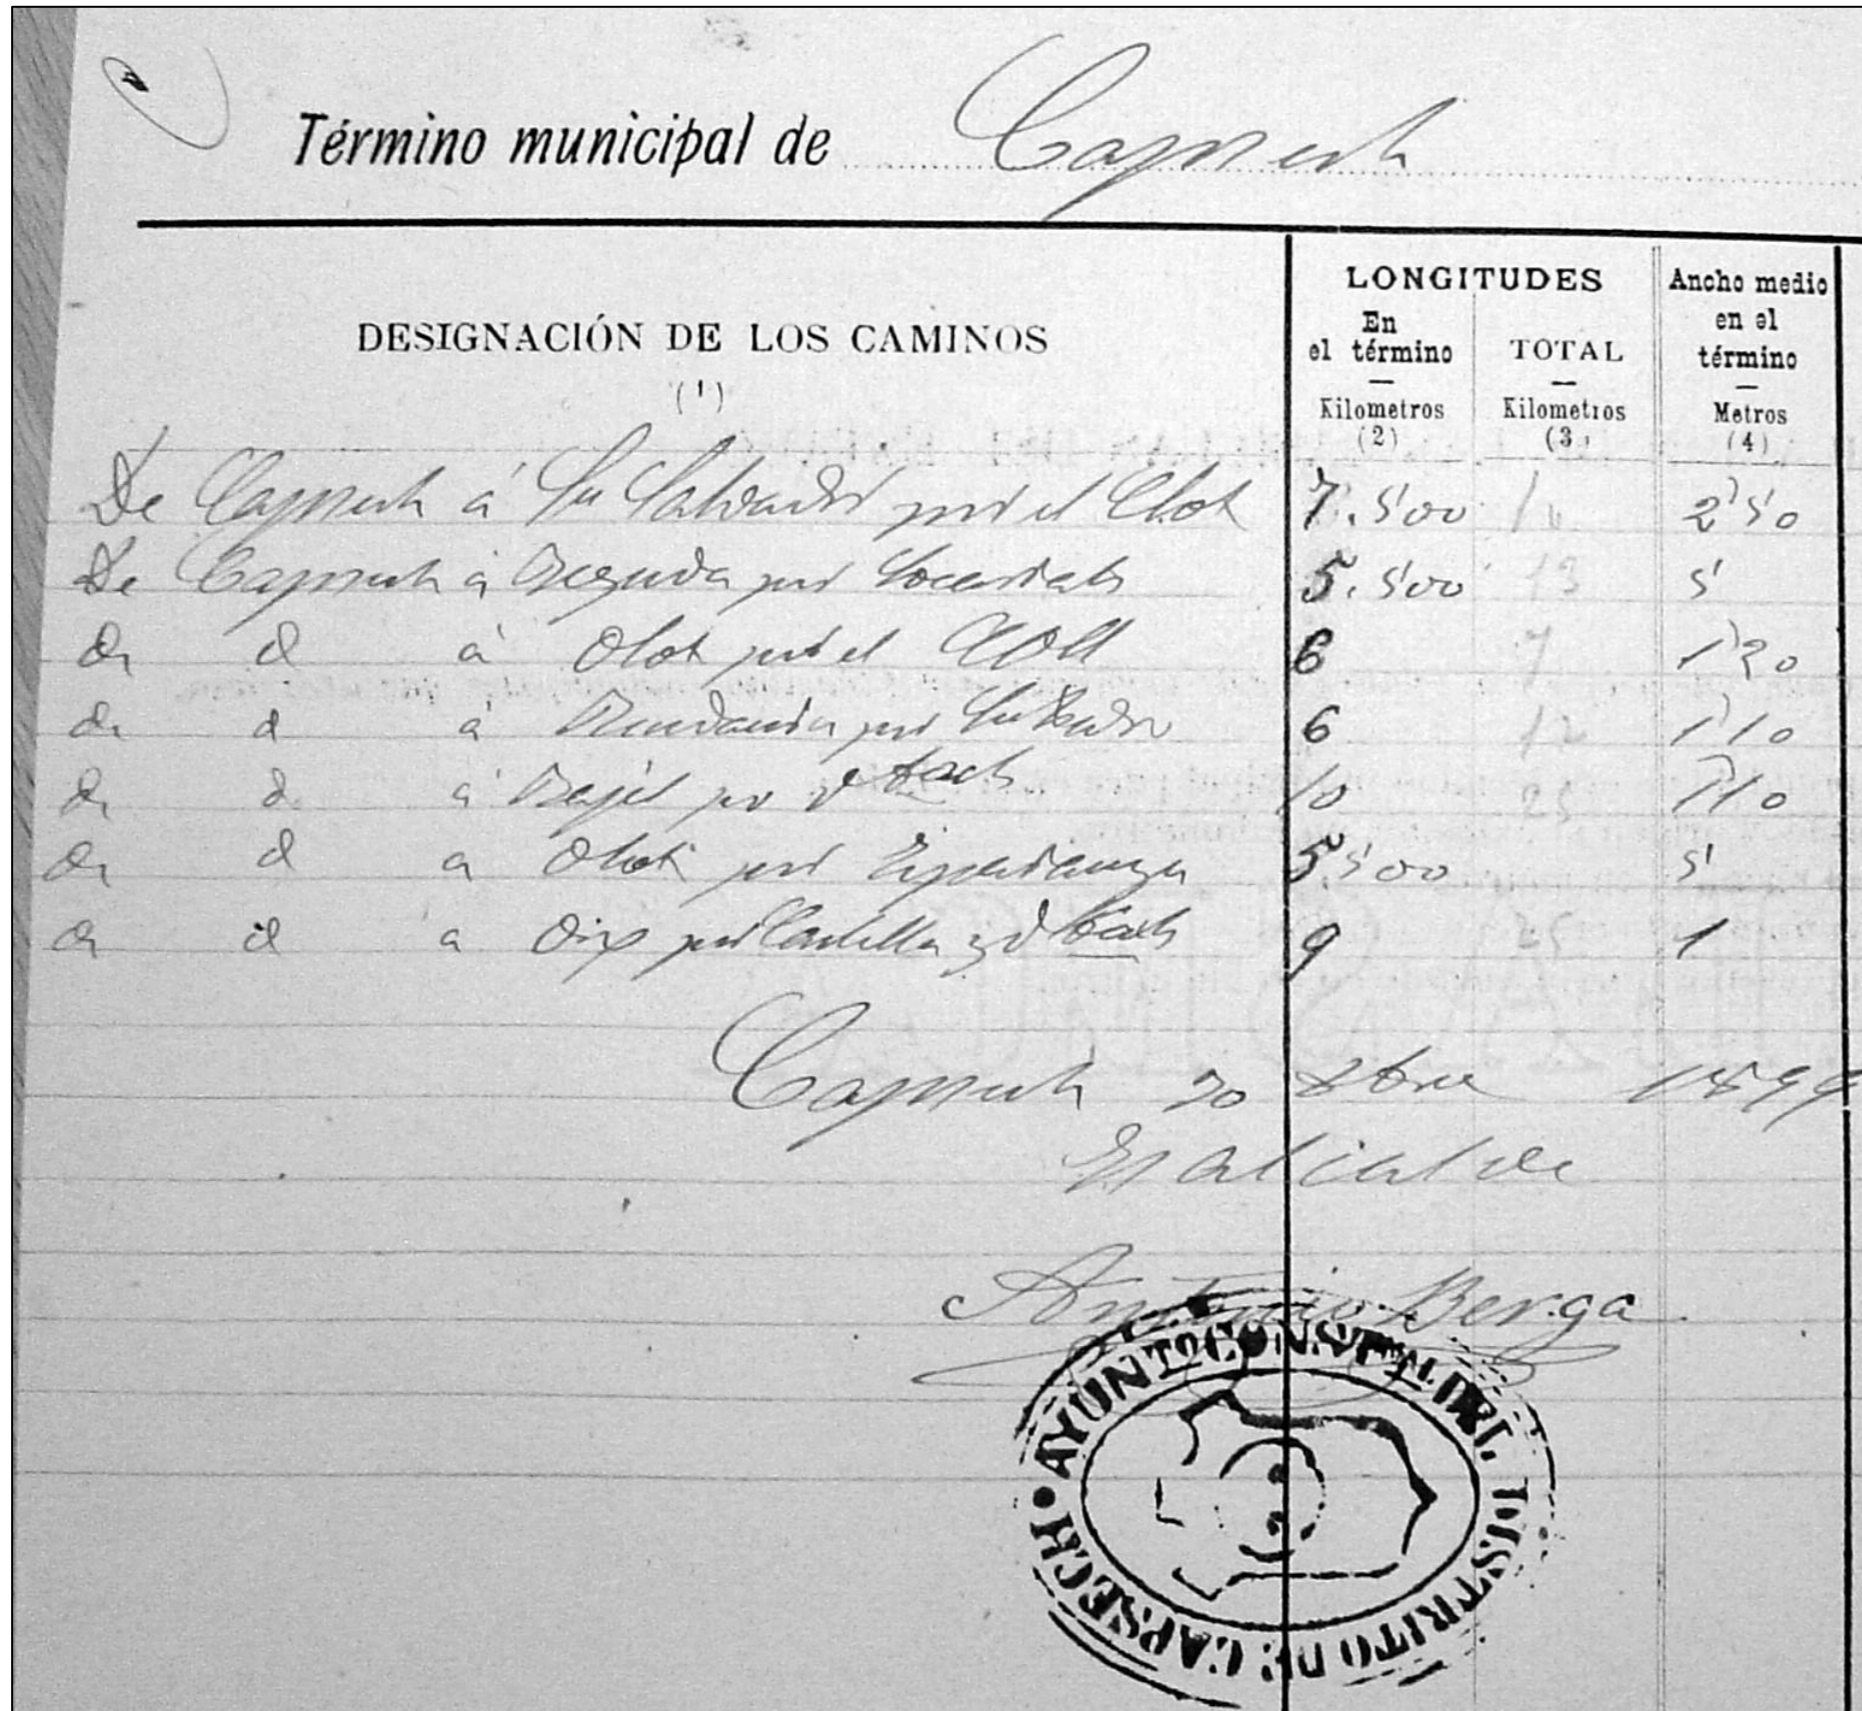 Término municipal de Capsech
DESIGNACIÓN DE LOS CAMINOS
(1)
LONGITUDES
En el término
Kilometros
(2)
TOTAL
Kilometros
(3)
Ancho medio en el término
Metros
(4)
De Capsech á Sn Salvador por el Clot 7.500 2'50
De Capsech á Beguda por 5.500 13 5
De id á Olot por el Coll 6 7 1'20
de id á por 6 12 1'10
de id á por 10 25 1'10
de id a Olot por Esperanza 5.500 5
de id a Oix por Castellar y 9 25 1
Capsech 30 8bre 1899
El Alcalde
Antonio Berga
AYUNTO CONSTL DEL DISTRITO DE CAPSECH